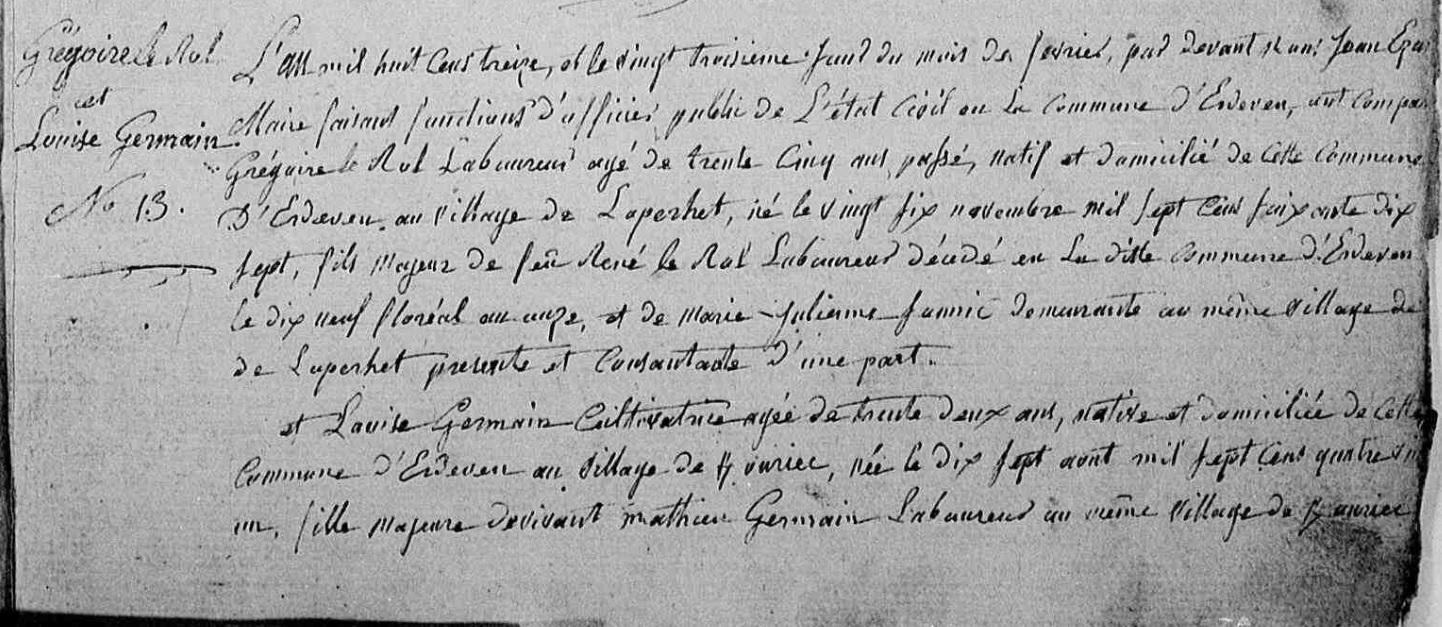 Grégoire le Rol
et
Louise Germain
No 13.
L'an mil huit cens treize, et le vingt troisieme jour du mois de fevrier, par devant nous Jean
Maire faisant functions d'officier public de L'état Civil en La Commune d'Erdeven, ont Compar
Grégoire le Rol Laboureur agé de trente Cinq ans passé, natif et domicilié de Cette Commune
D'Erdeven au village de Loperhet, né le vingt six novembre mil sept Cens soixante dix
sept, fils majeur de feu René le Rol Laboureur décédé en La ditte Commune d'Erdeven
le dix neuf floréal an onze, et de Marie Julienne Jannic demeurante au même village de
de Loperhet presente et Consantante d'une part.
et Louise Germain Cultivatrice agée de trente deux ans, native et domiciliée de Cette
Commune d'Erdeven au village de, née le dix sept aout mil sept Cens quatre
un, fille majeure devivant mathieu Germain Laboureur au même village de